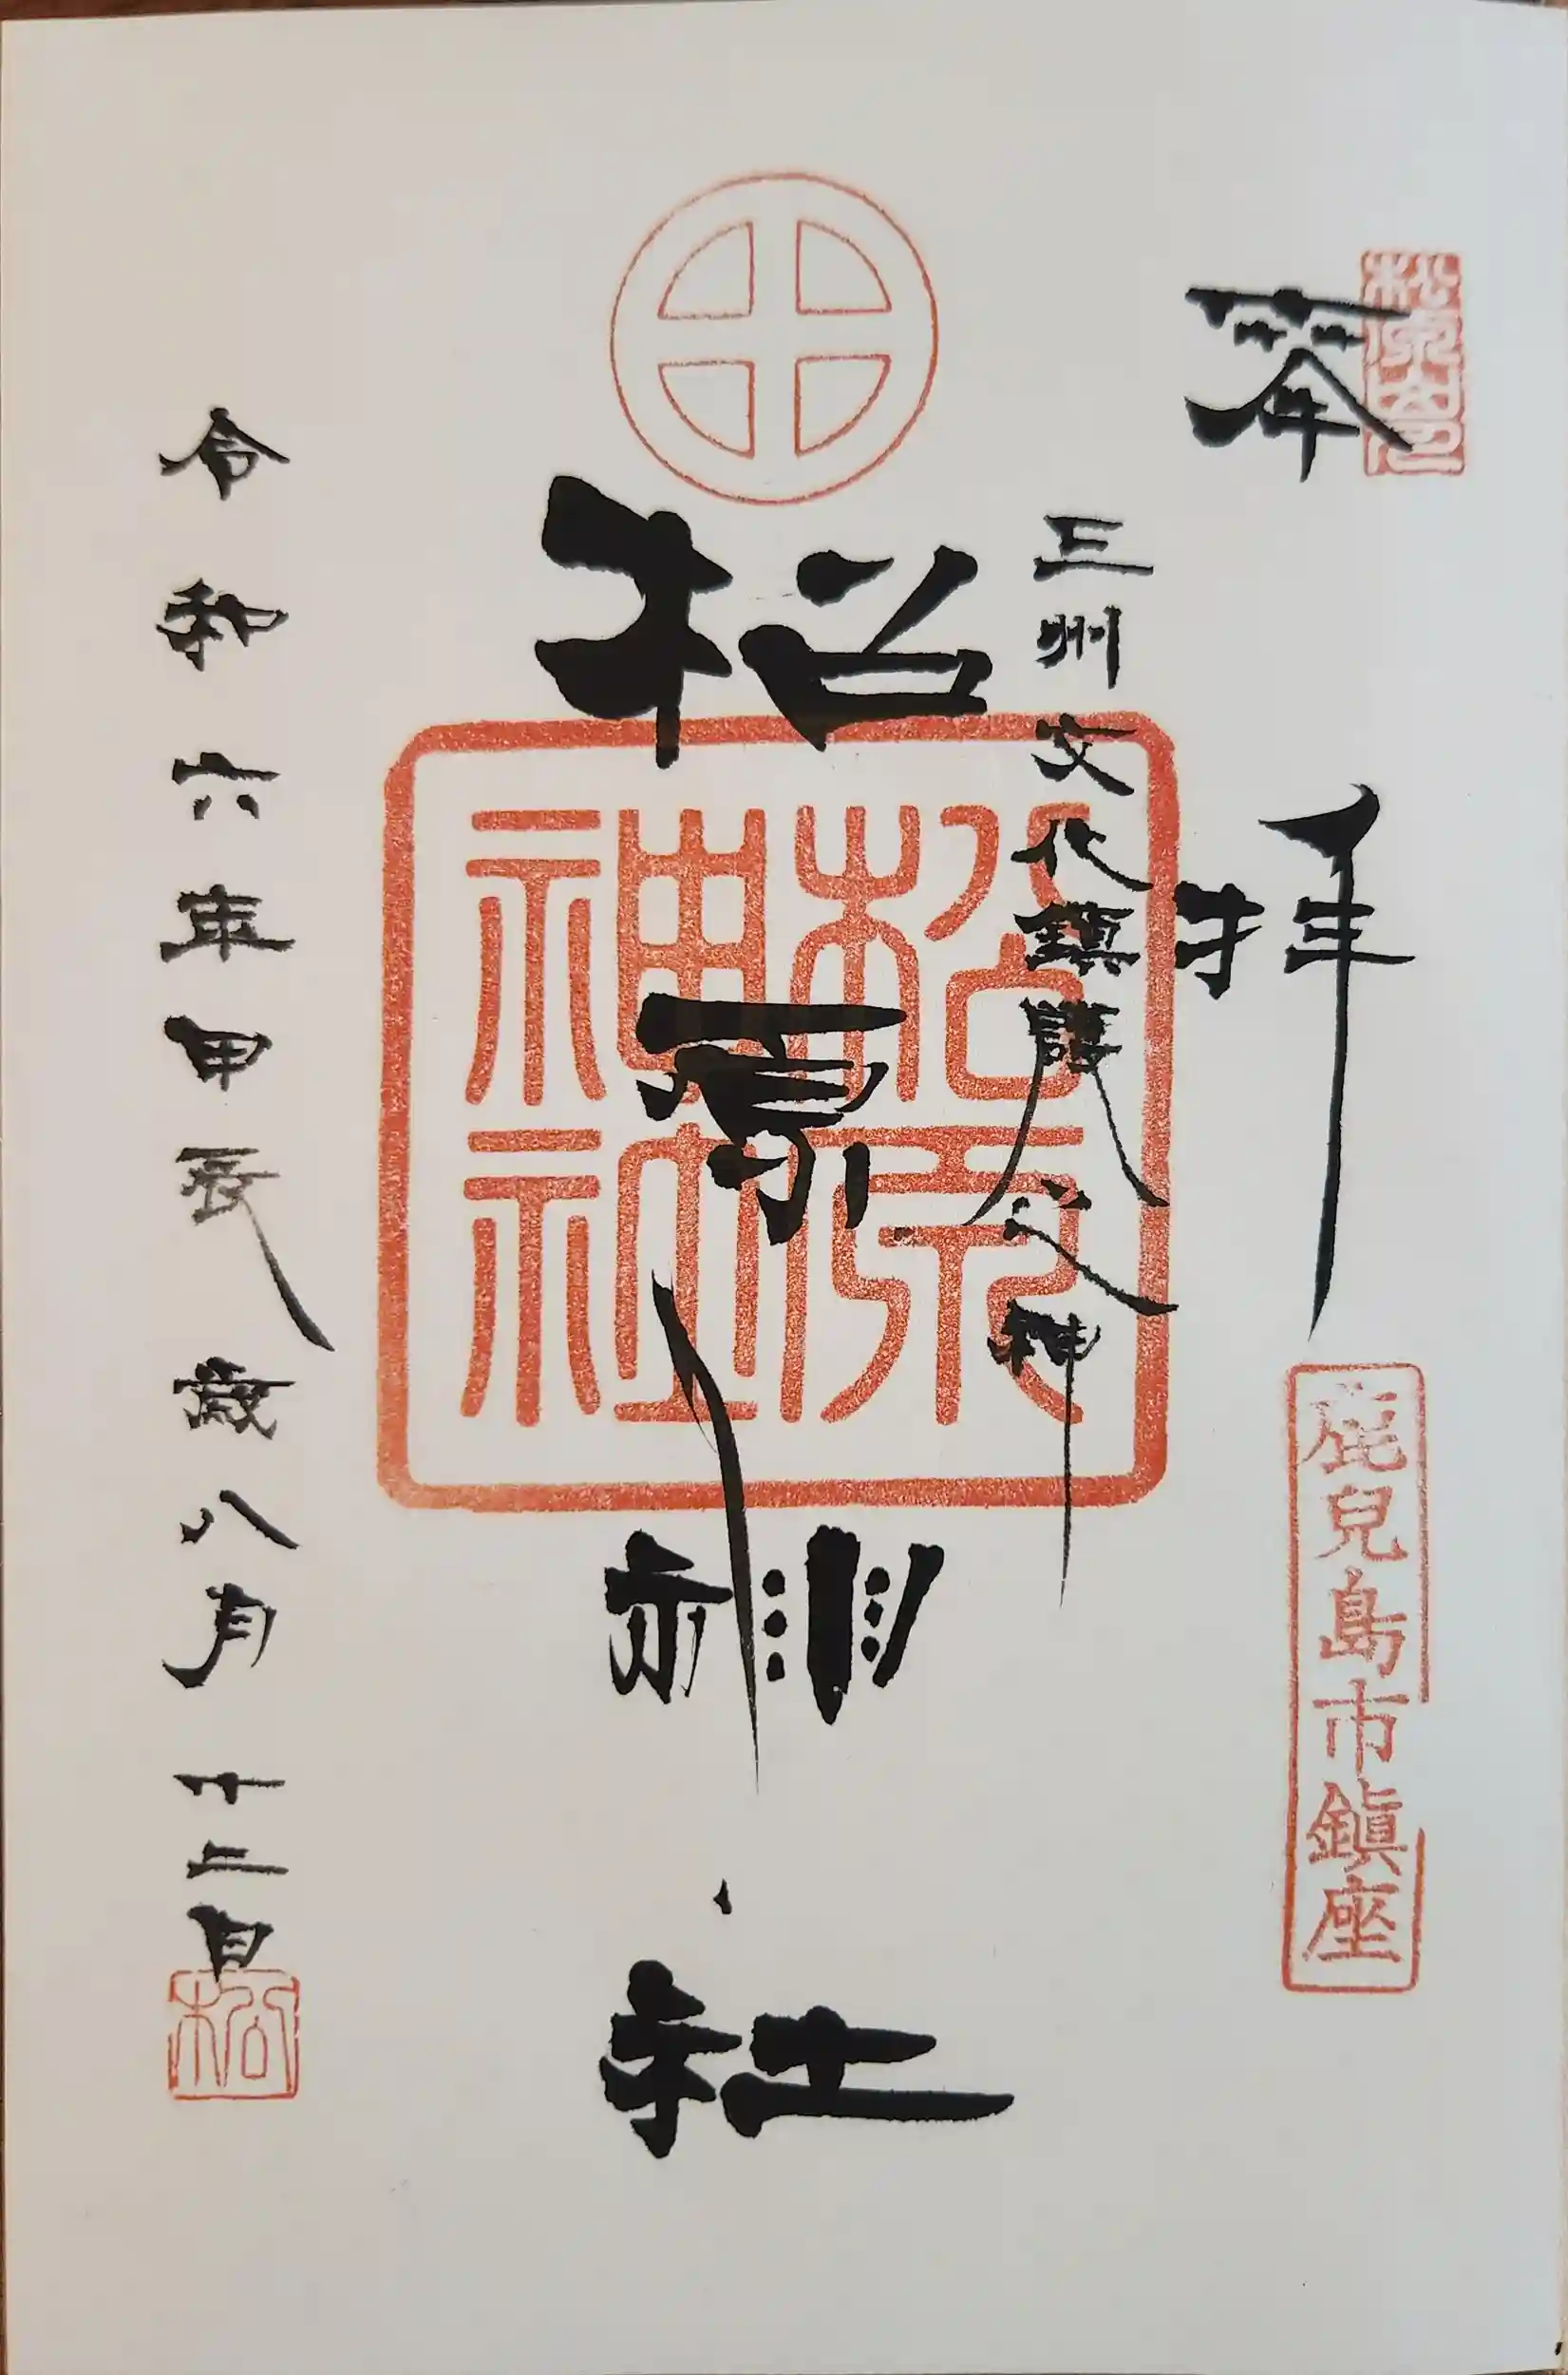 松原山印
奉拝
鹿兒島市鎮座
三州文化鎮護之神
松原神社
松原神社
令和六年甲辰歳八月十二日
松